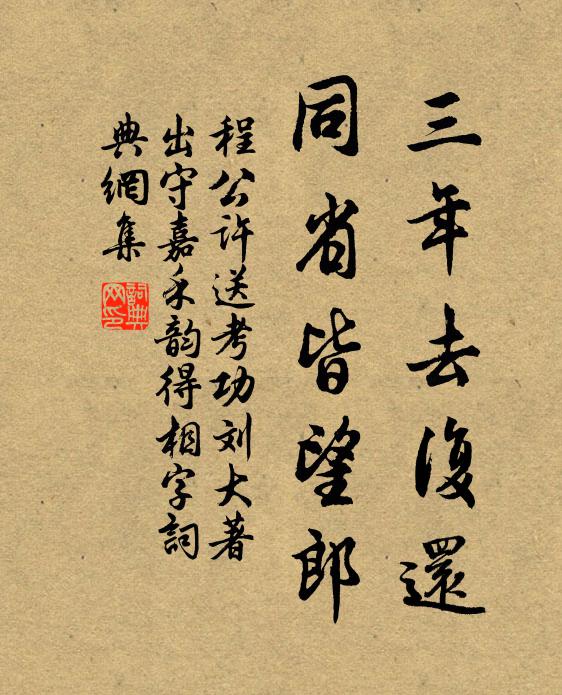 三年去復還
同省皆望郎
程公許送考功刘大著
出守嘉禾韵得相字詞
典網集
詞典网印